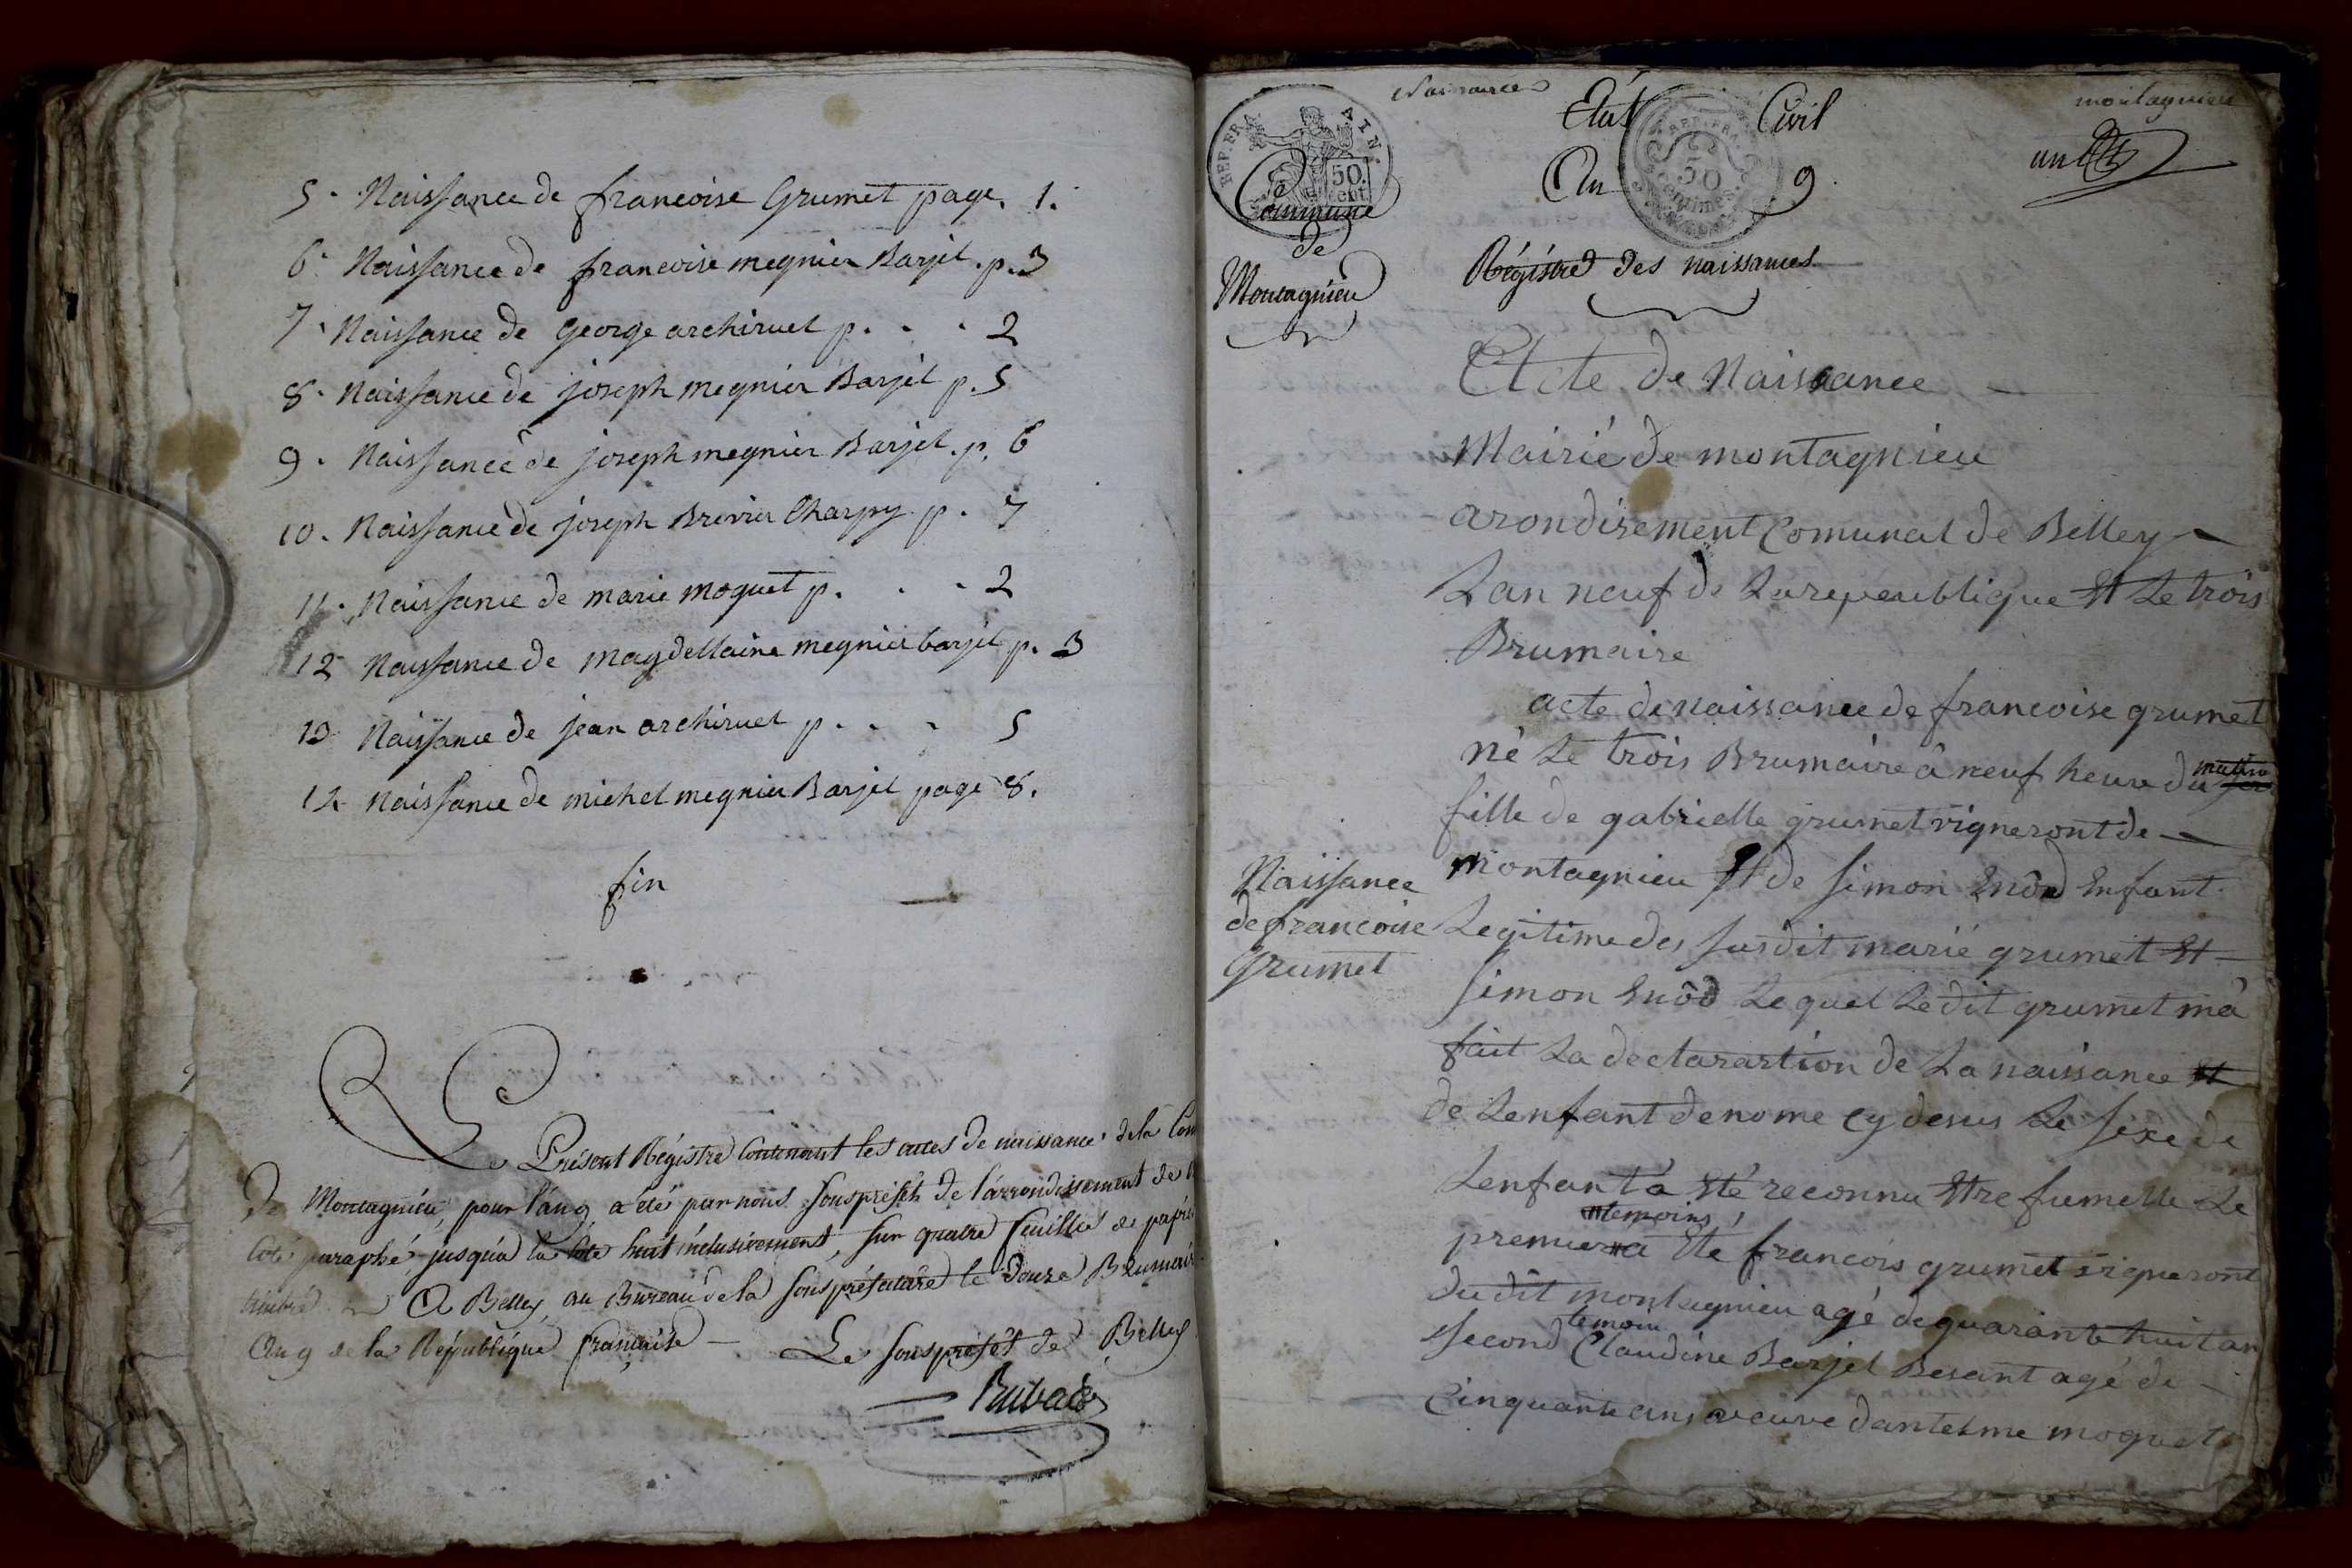 5. Naissance de francoise Grumet page. 1.
6. Naissance de francoise megnier Barjet. p. 3
7. Naissance de george archiruel p. . . 2
8. Naissance de joseph megnier Barjet p. 5
9. Naissance de joseph megnier Barjet. p. 6
10. Naissance de joseph Brevier Charpy p. 7
11. Naissance de marie moquet p. . . 2
12 Naissance de magdellaine megnier barjet p. 3
13 Naissance de jean archiruel p. . . 5
14 naissance de michel megnier Barjet page 8.
fin
Le Présent Régistre Contenant les actes de naissance de la Com
de Montagnieu, pour l'an 9 a été par nous Souspréfet de l'arrondissement de
coté paraphé, jusqu'à la cote huit inclusivement, sur quatre feuilles de papier
timbré A Belley, au Bureau de la Souspréfecture le Douze Brumaire
An 9 de la République française Le Souspréfet de Belley
Naissances
montagnieu
REP. FRA. AIN.
50. cent
REP. FRA.
50 centimes
Etat Civil
un
An 9
Commune
de
Montagnieu
Régistre des naissances
Acte de Naissance
Mairié de montagnieu
arondisement Comunal de Belley
Lan neuf de Larepeublique Et Le trois
Brumaire
acte de naissance de francoise grumet
né Le trois Brumaire à neuf heure du matin
fille de gabrielle grumet vigneront de
Naissance
de francoise
Grumet
montagnieu Et de Simon Enôd Enfant
Legitime des Susdit marié grumet Et
Simon Enôd Lequel Ledit grumet mà
fait La declarartion de La naissance Et
de Lenfant denome cy desus Le Sexe de
Lenfant à Eté reconnu Etre fumelle Le
temoins
premier à Ete francois grumet vigneront
du dit montagnieu agé dequarante huit an
temoin
second Claudine Barjet Besant agé de
Cinquante ans veuve dantelme moquet